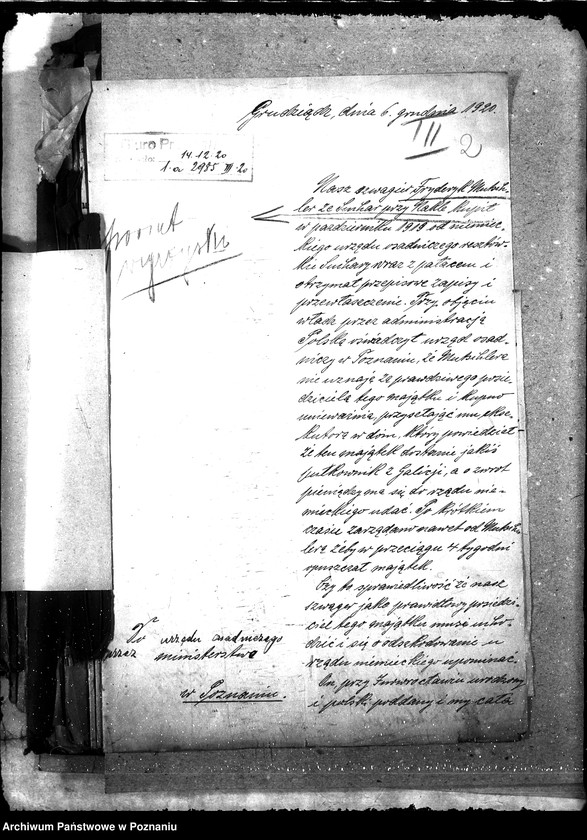 Grudziądz, dnia 6. grudnia 1920.
III
2
Biuro Pr
14.12.20
1.a 2955 III 20
powiat
wyrzyski
Nasz szwagier Fryderyk Mutsch-
ler ze Suchar przy Nakle, kupił
w październiku 1919 od niemiec-
kiego urzędu osadniczego resztów-
kie Suchary wraz z pałacem i
otrzymał przepisowe zapisy i
przewłaszczenie. Przy objęciu
władz przez administrację
Polską oświadczył urząd osad-
niczy w Poznaniu, że Mutschlera
nie uznaje za prawdziwego posie-
dziciela tego majątku i kupno
unieważnia, przysyłając mu ekse-
kutora w dom, który powiedział
że ten majątek dostanie jakiś
pułkownik z Galicji, a o zwrot
pieniędzy ma się do rządu nie-
mieckiego udać. Po krótkiem
czasie zarządano nawet od Mutsch-
lera żeby w przeciągu 4 tygodni
opuszczał majątek.
Czy to sprawiedliwość że nasz
szwager jako prawdłowy posiedzi-
ciel tego majątku musi ucho-
dzić i się o odszkodowanie u
rządu niemieckiego upominać.
On, przy Inowrocławiu urodzony
i polski poddany i my cała
Do urzędu osadniczego
przez ministerstwa
w Poznaniu.
Archiwum Państwowe w Poznaniu